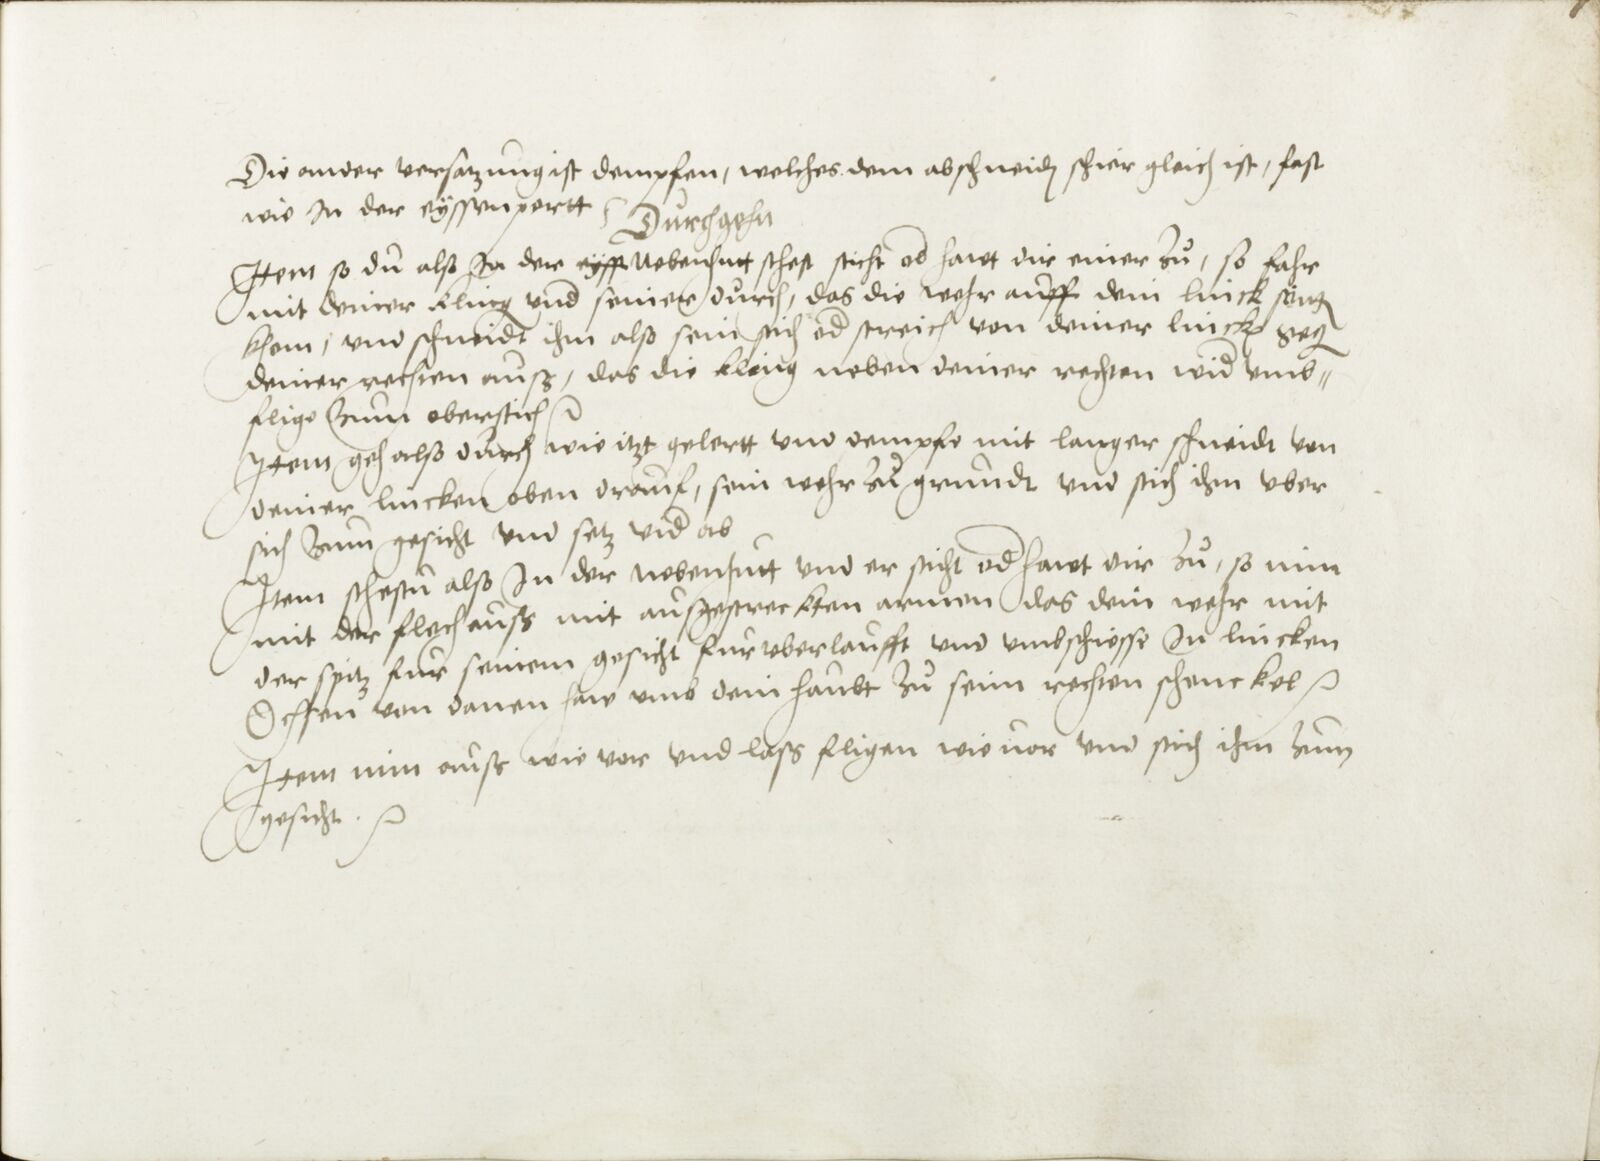 Die ander versatzung ist dempfen, welches dem abschneidn schier gleich ist, fast
wie In der eyssenportt
Durchgehn
Item so du also In der eyss Nebenhutt stehst sticht od hawt dir einer zu, so fahr
mit deiner kling vnd seiner durch, das die wehr auff dein linck seitn
khom, vnd schneidt ihm also sein stich od streich von deiner linck geg
deiner rechten auß, das die kling neben deiner rechten wid vmb„
flige zum oberstich
Item geh also durch wie itzt gelertt vnd dempfe mit langer schneidt von
deiner lincken oben drauf, sein wehr zu grundt vnd stich ihm vber
sich zum gesicht vnd setz wid ab
Item stehstu also In der nebenhutt vnd er sticht od hawt dir zu, so nim
mit der flech auß mit außgestreckten armen das dein wehr mit
der spitz fur seinem gesicht furvberlaufft vnd vmbschiesse In lincken
Ochsen von danen haw vmb dein haubt zu seim rechten schenckel
Item nim auß wie vor vnd lass fligen wie vor vnd stich ihm zum
gesicht.